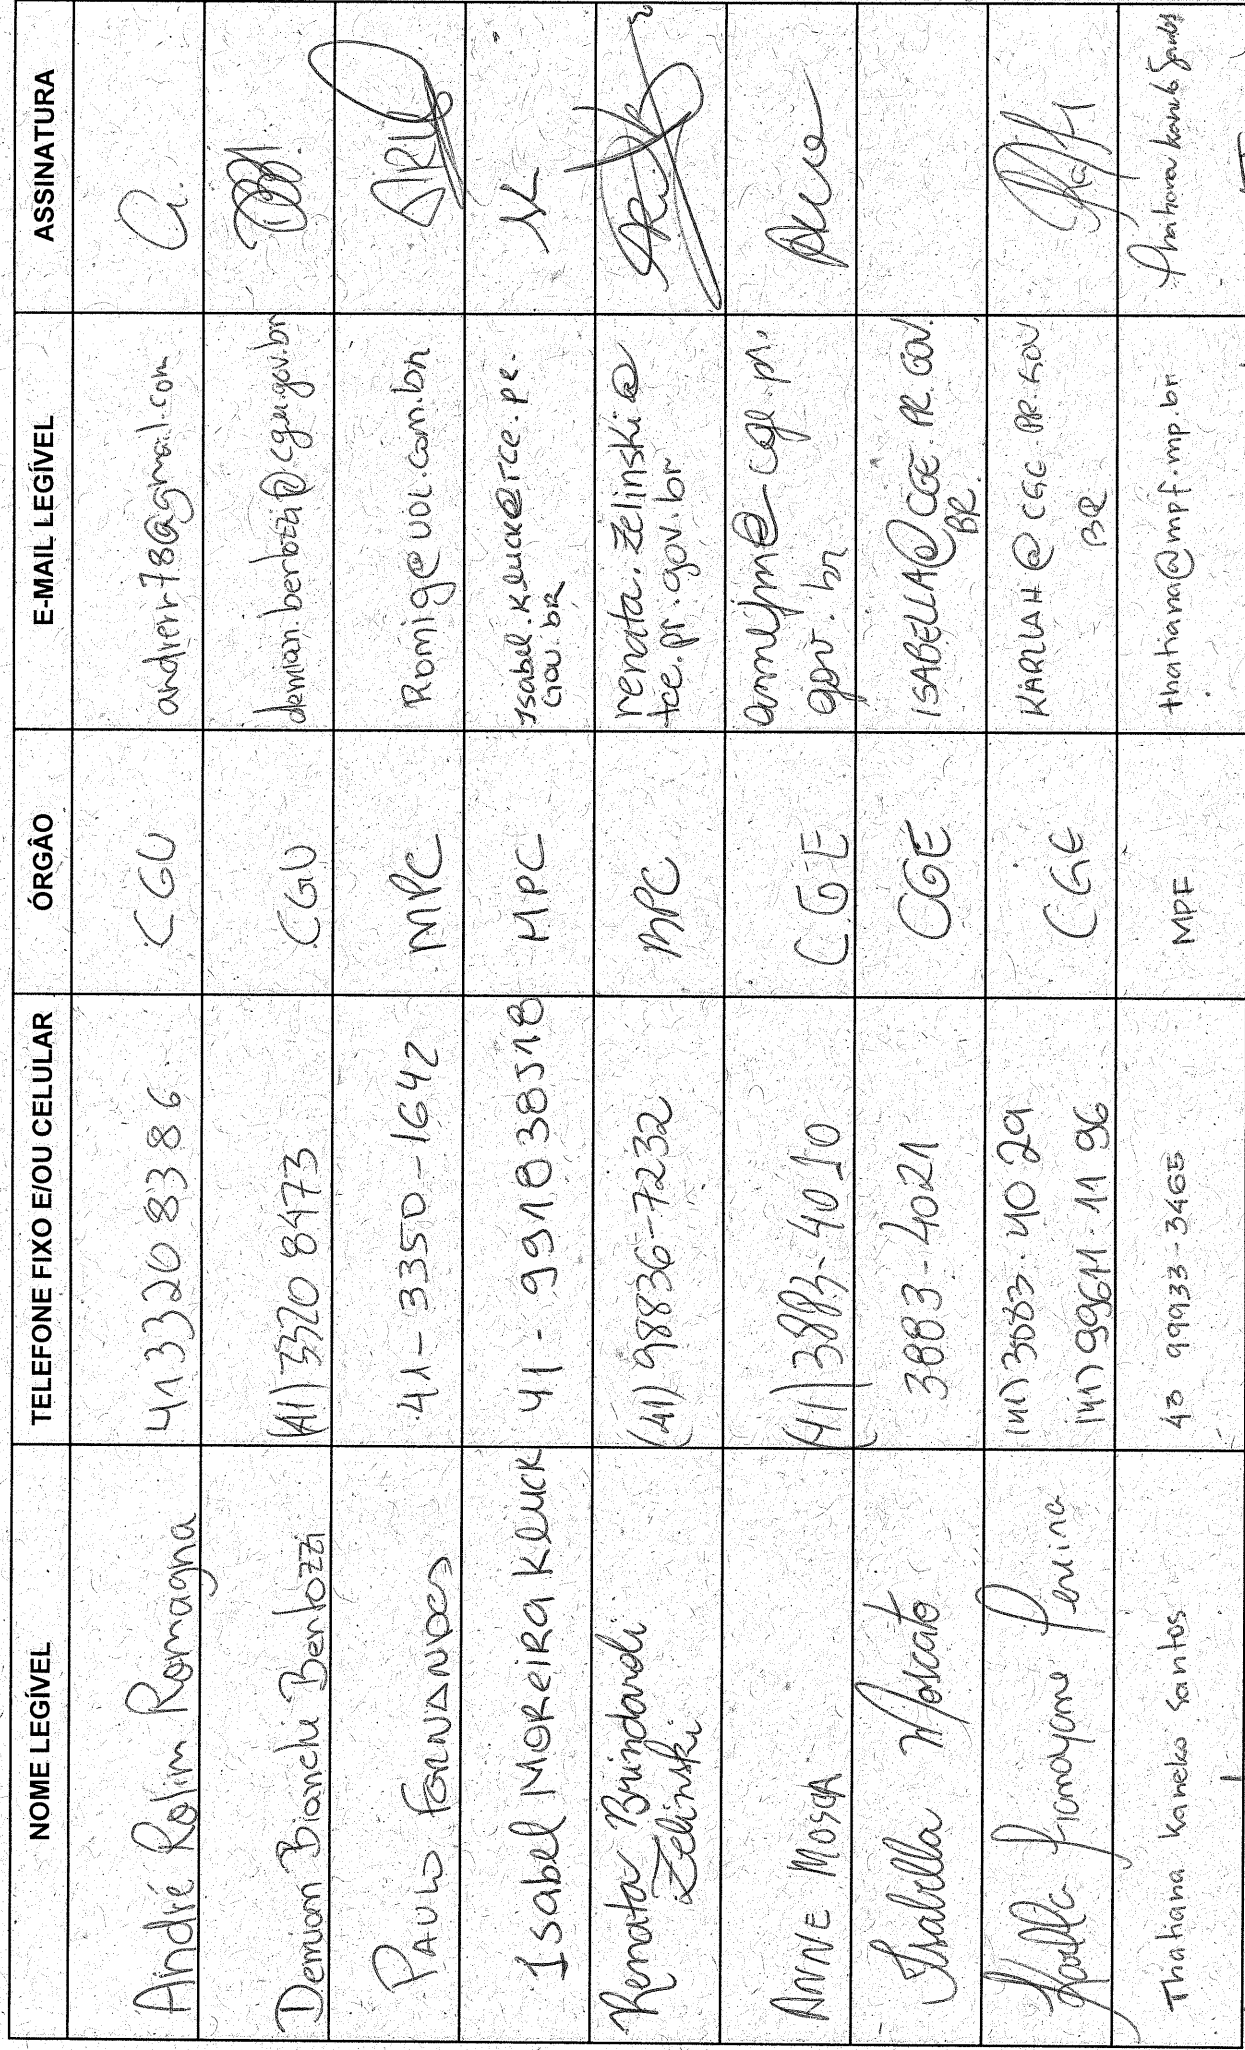 NOME LEGÍVEL TELEFONE FIXO E/OU CELULAR ÓRGÃO E-MAIL LEGÍVEL ASSINATURA
André Rolim Romagna 41 3320 8386 CGU andrerr78@gmail.com
Demian Bianchi Bertozzi (41) 3320 8473 CGU demian.bertozzi@cgu.gov.br
PAULO FERNANDES 41-3350-1642 MPC Romig@uol.com.br
Isabel MOREIRA KLUCK 41-991838518 MPC Isabel.Kluck@TCE.PR.
GOV.BR
Renata Brindaroli
Zelinski (41) 98836-7232 MPC renata.zelinski@
tce.pr.gov.br
ANNE MOSCA (41) 3883-4010 CGE
gov.br
Isabella Moscato 3883-4021 CGE ISABELLA@CGE.PR.GOV.
BR.
Karlla 3883.4029 CGE KARLLAH@CGE.PR.GOV
(41) 99611.1196 BR
Thatiana Kaneko Santos 43 99933-3465 MPF thatiana@mpf.mp.br Thatiana Kaneko Santos